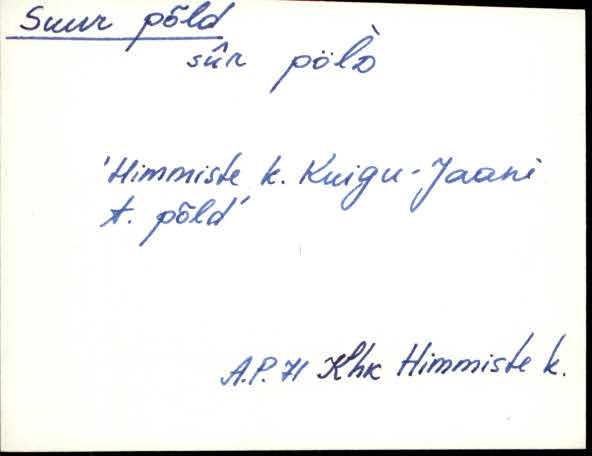 Suur põld
sûr põlD
'Himmiste k. Kuigu-Jaani
t. põld'
A.P. 71 Khk Himmiste k.